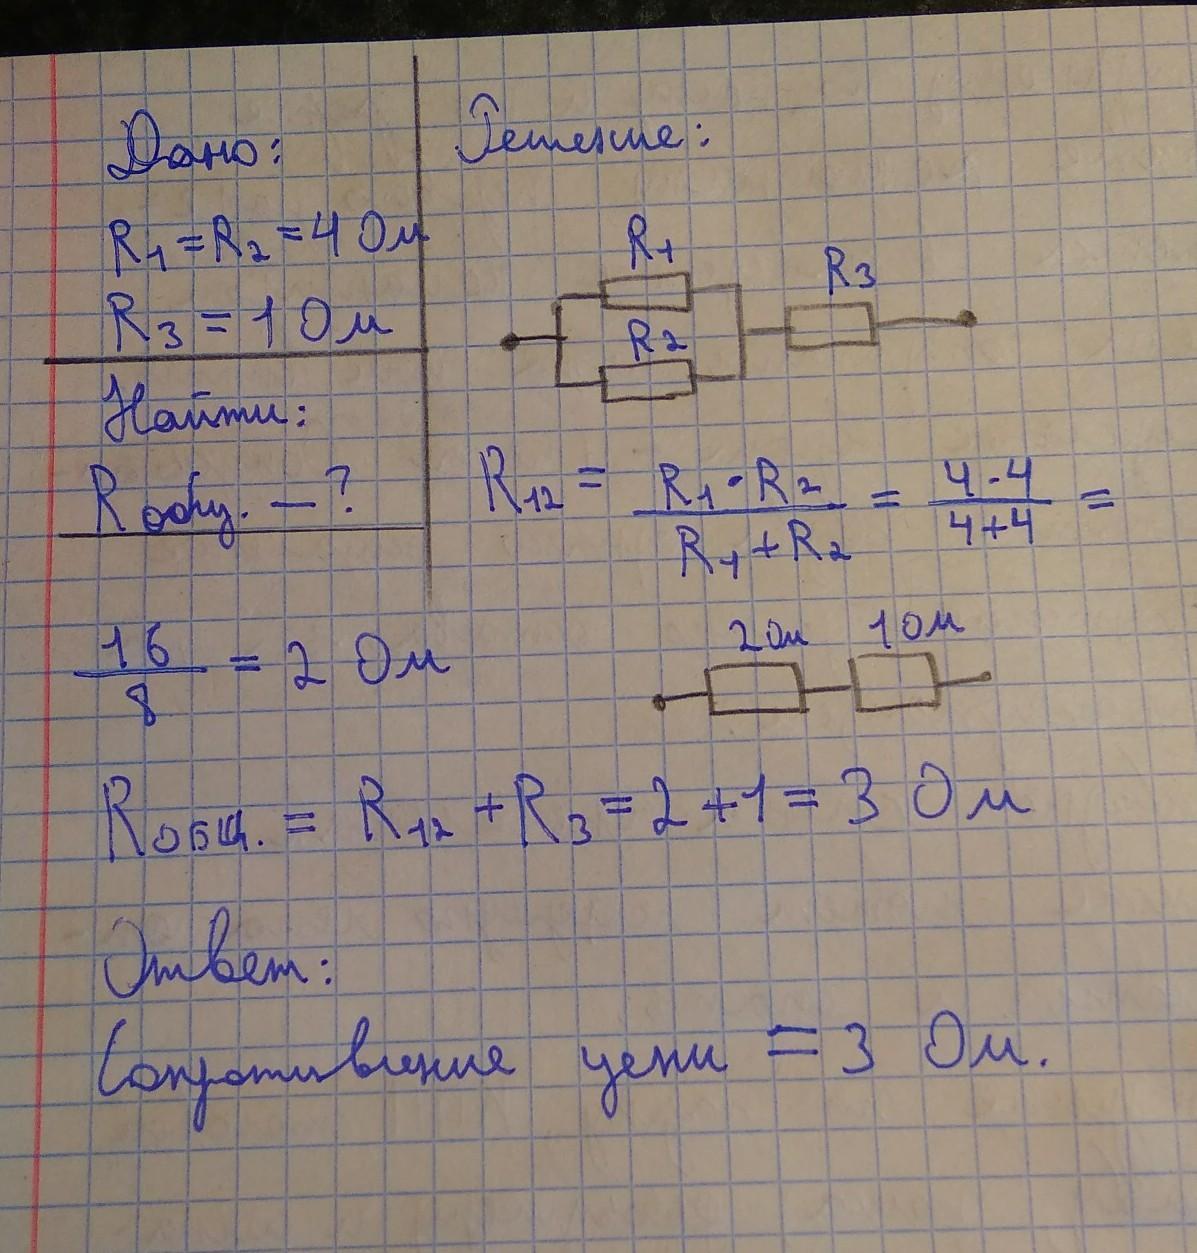 Дано:
R₁ = R₂ = 4 Ом
R₃ = 1 Ом
Найти:
Rобщ. — ?
Решение:
R1
R2
R3
R₁₂ = R₁ · R₂ / R₁ + R₂ = 4 · 4 / 4 + 4 =
16 / 8 = 2 Ом
2 Ом 1 Ом
Rобщ. = R₁₂ + R₃ = 2 + 1 = 3 Ом
Ответ:
Сопротивление цепи = 3 Ом.